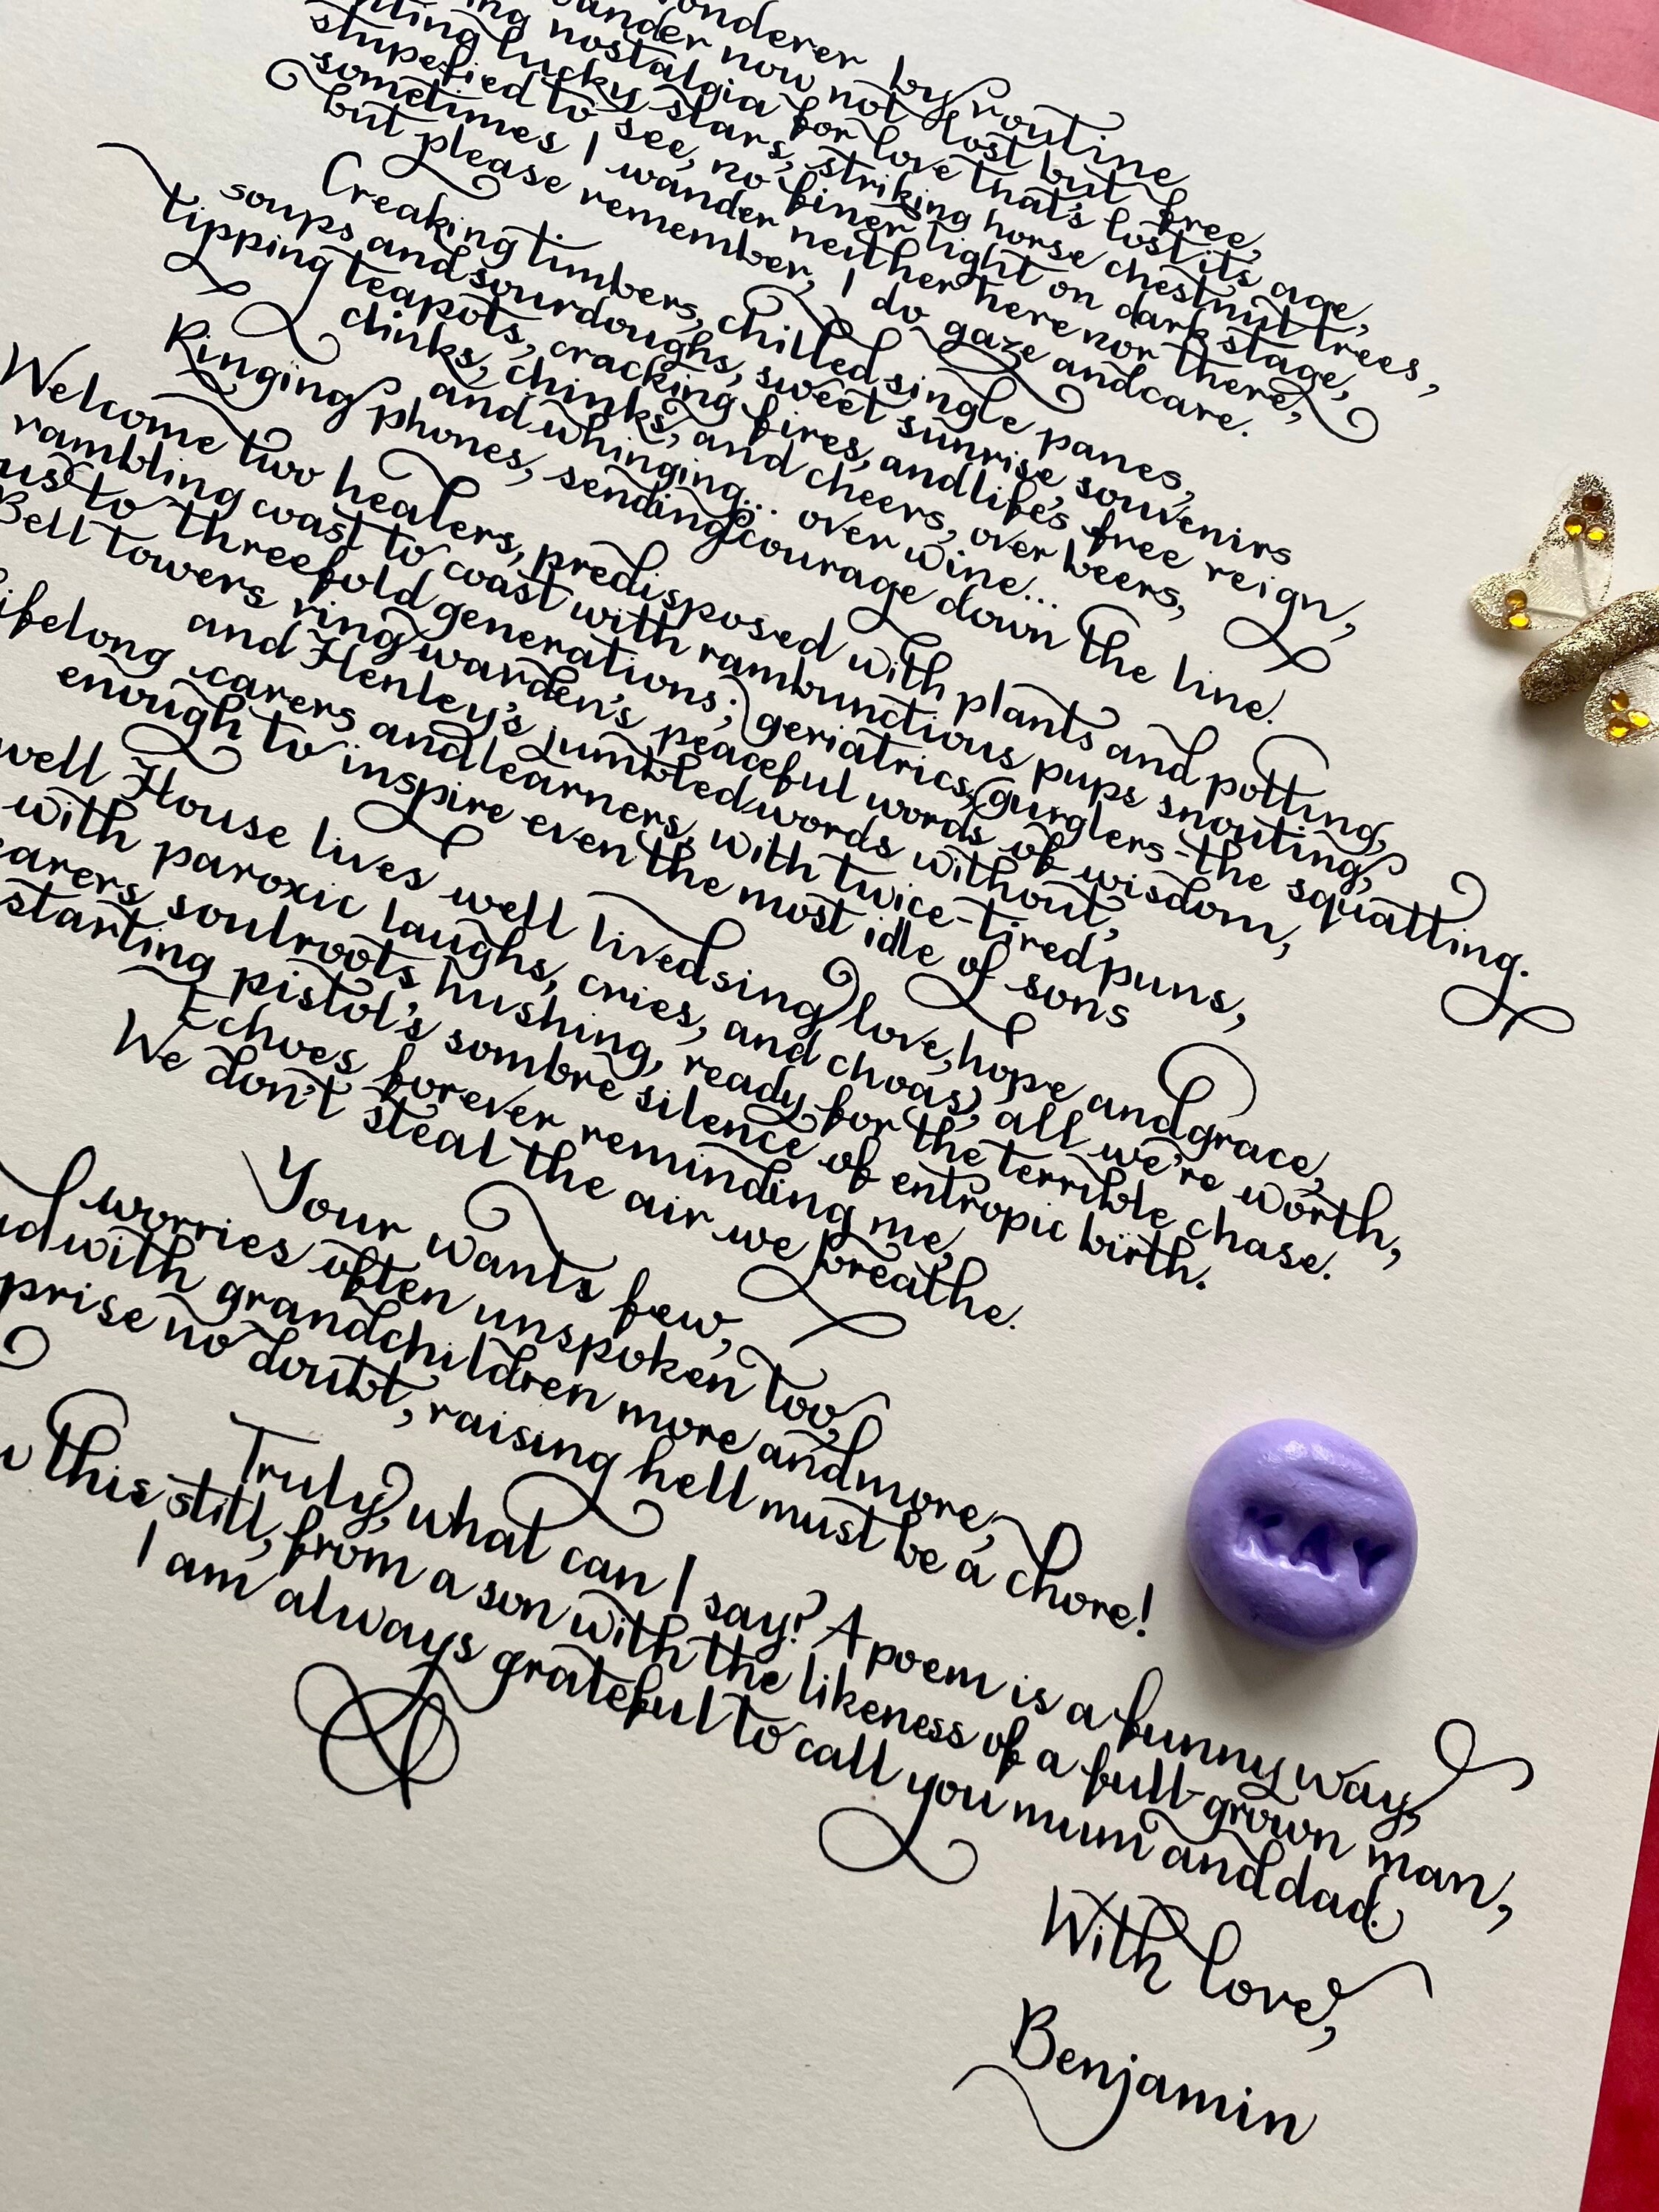 by routine
now not lost but free,
nostalgia for love that's lost its age,
lucky stars, striking horse chestnut trees,
stupefied to see, no finer light on dark stage,
sometimes I wander neither here nor there,
but please remember, I do gaze and care.
Creaking timbers, chilled single panes,
soups and sourdoughs, sweet sunrise souvenirs
tipping teapots, cracking fires, and life's free reign,
clinks, chinks, and cheers, over beers,
and whinging... over wine...
Ringing phones, sending courage down the line.
Welcome two healers, predisposed with plants and potting,
rambling coast to coast with rambunctious pups snouting,
us to threefold generations; geriatrics, gurglers - the squatting.
Bell towers ring warden's peaceful words of wisdom,
and Henley's jumbled words without,
lifelong carers and learners, with twice-tired puns,
enough to inspire even the most idle of sons
well House lives well lived sing love, hope and grace,
with paroxic laughs, cries, and choas, all we're worth,
soul roots hushing, ready for the terrible chase.
starting pistol's sombre silence of entropic birth.
Echoes forever reminding me,
We don't steal the air we breathe.
Your wants few,
worries often unspoken too,
with grandchildren more and more,
prise no doubt, raising hell must be a chore!
Truly, what can I say? A poem is a funny way,
this still, from a son with the likeness of a full-grown man,
I am always grateful to call you mum and dad.
With love,
Benjamin
KAY